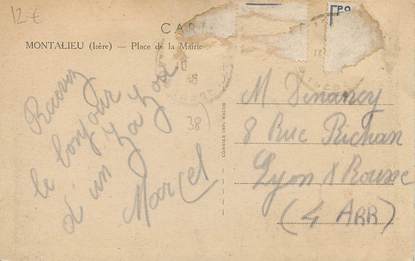 12€
CAR
MONTALIEU (Isère) — Place de la Mairie
Recevez
le bonjour
d'un Zazou
Marcel
38)
M Dinancy
8 Rue Richan
Lyon X Rousse
(4 ARR)